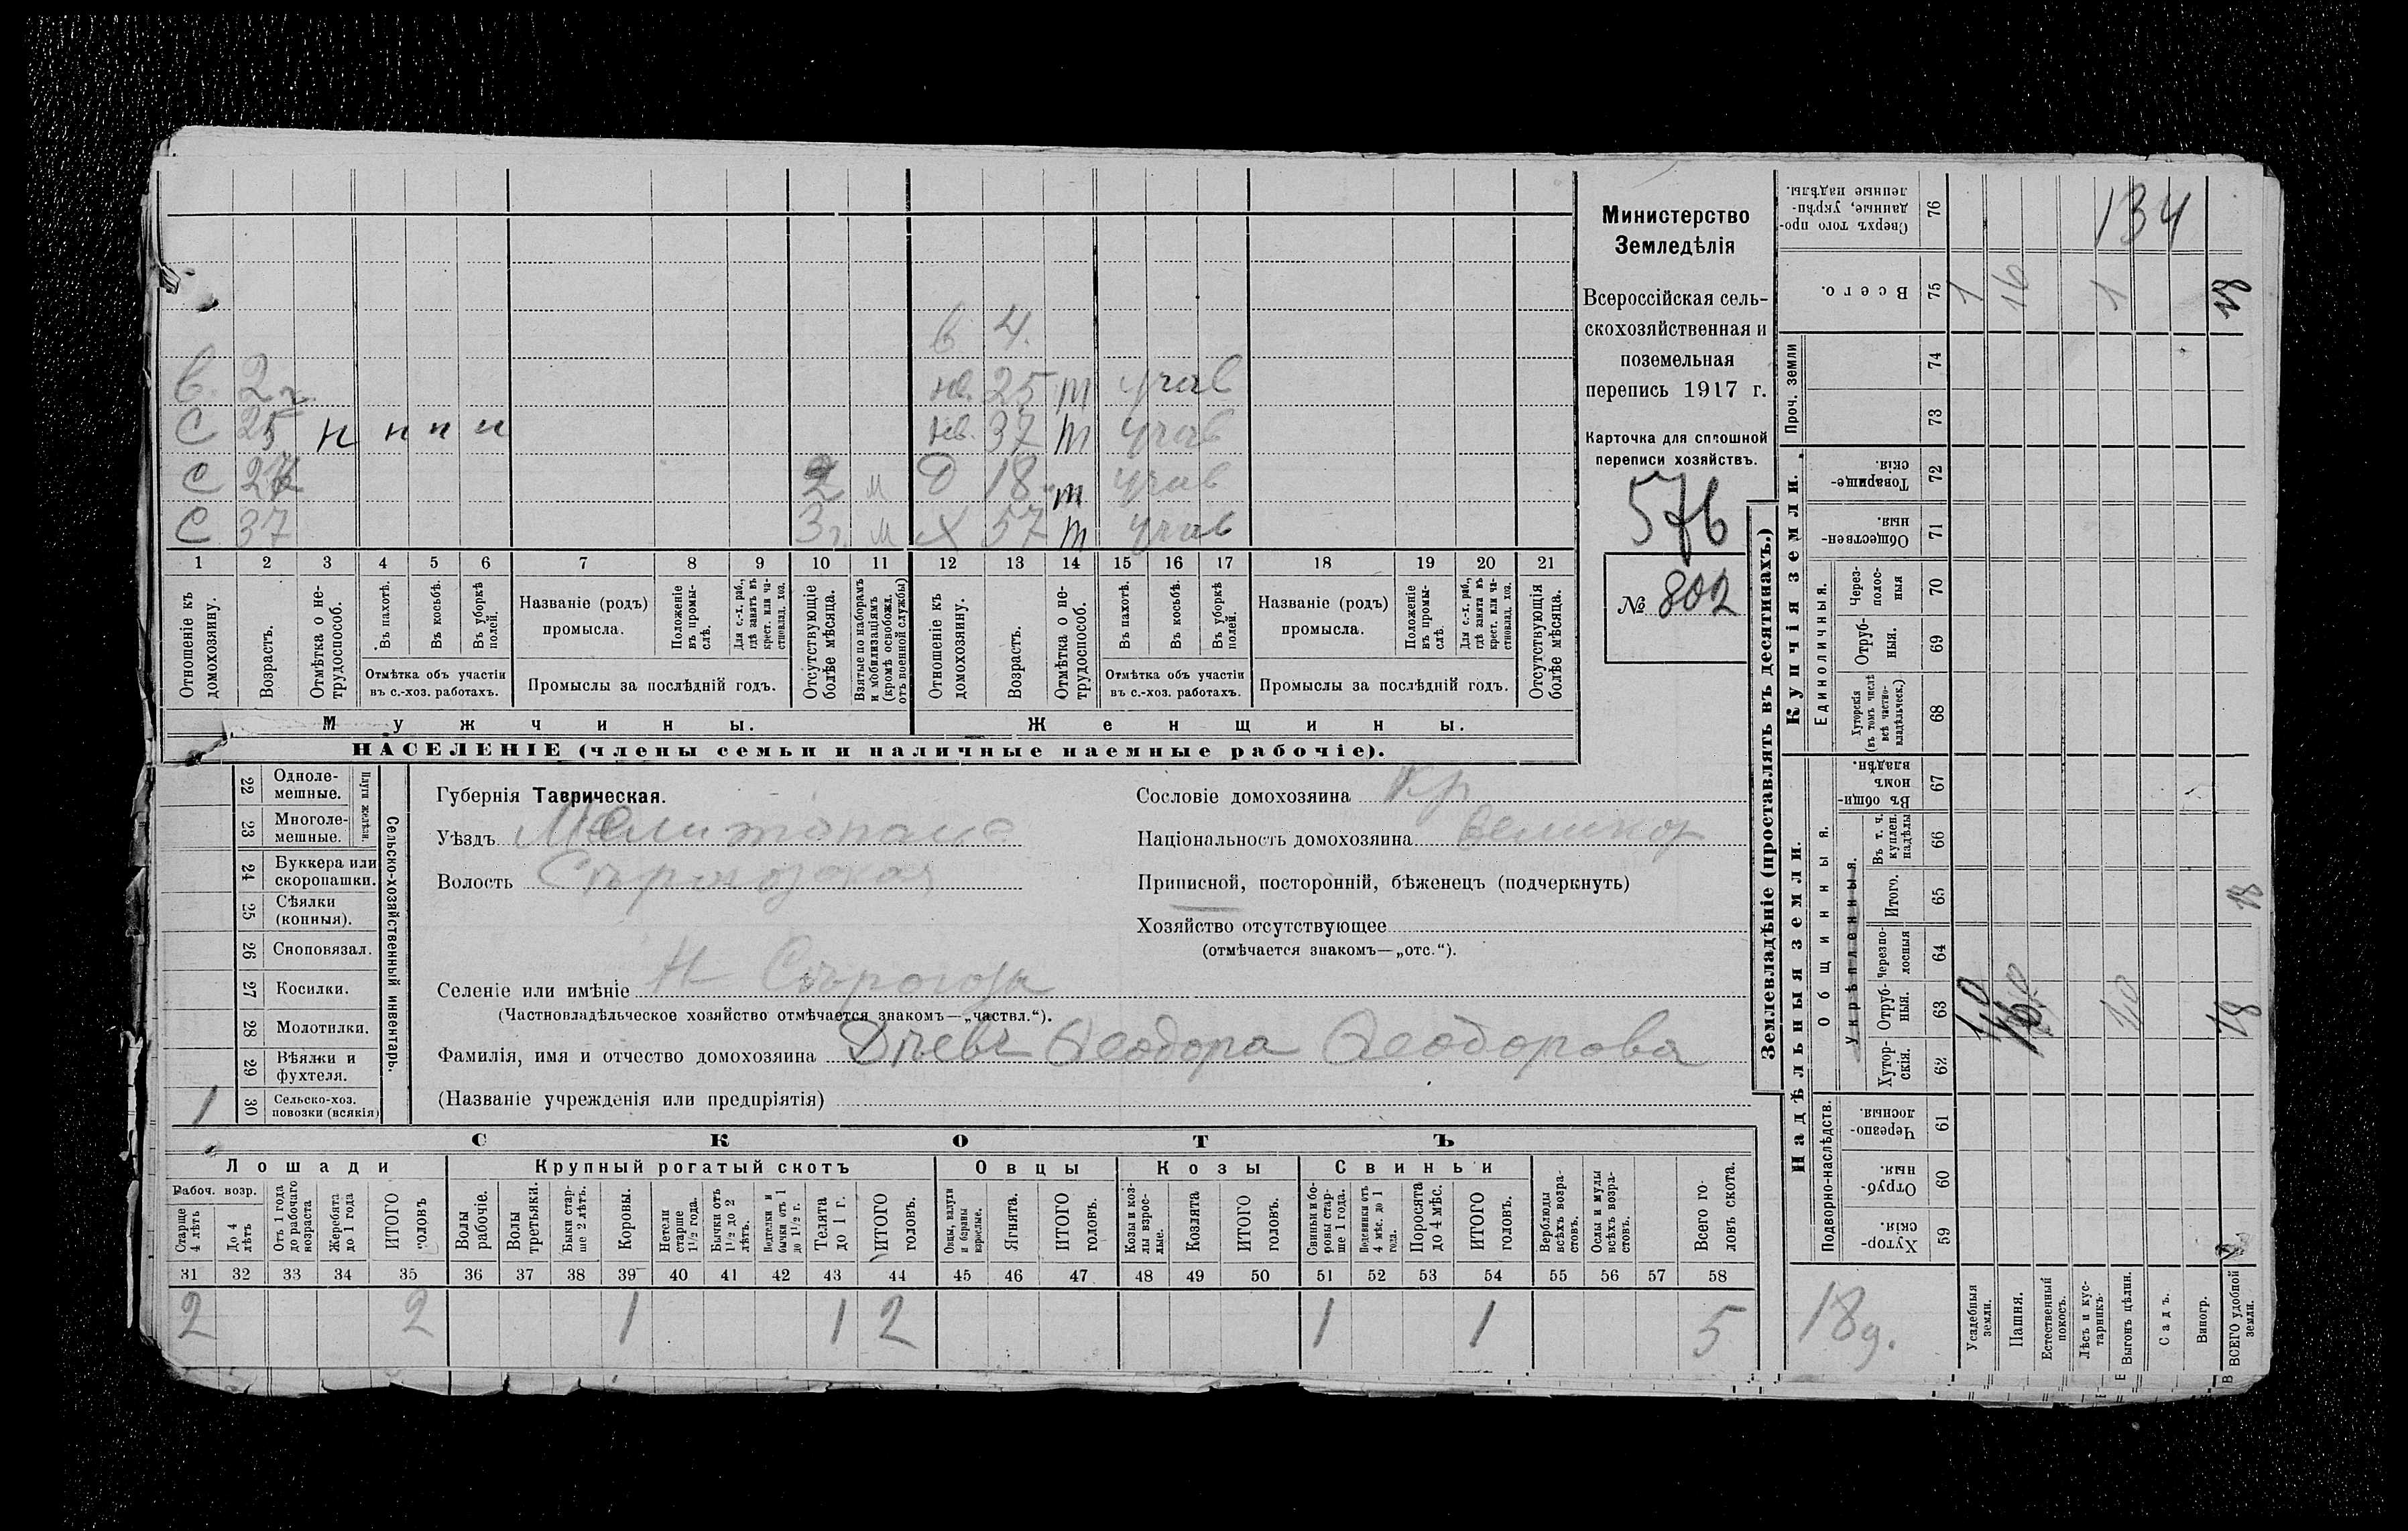 Министерство
Земледѣлія
Всероссійская сель-
скохозяйственная и
поземельная
перепись 1917 г.
Карточка для сплошной
переписи хозяйствъ.
576
№ 802
в 4.
в. 2 г. нв. 25 т учав
С 25 н н н н нв. 37 т учав
С 2 м Д 18 т учав
С 37 3 г. м Х 57 т учав
1 2 3 4 5 6 7 8 9 10 11 12 13 14 15 16 17 18 19 20 21
Отношеніе къ домохозяину.
Возрастъ.
Отмѣтка о не-трудоспособ.
Въ пахотѣ.
Въ косьбѣ.
Въ уборкѣ полей.
Отмѣтка объ участіи въ с.-хоз. работахъ.
Названіе (родъ) промысла.
Положеніе въ промы-слѣ.
Для с.-х. раб., гдѣ занятъ въ крест. или ча-стновлад. хоз.
Промыслы за послѣдній годъ.
Отсутствующіе болѣе мѣсяца.
Взятые по наборамъ и мобилизаціямъ (кромѣ освобожд. отъ военной службы)
Отношеніе къ домохозяину.
Возрастъ.
Отмѣтка о не-трудоспособ.
Въ пахотѣ.
Въ косьбѣ.
Въ уборкѣ полей.
Отмѣтка объ участіи въ с.-хоз. работахъ.
Названіе (родъ) промысла.
Положеніе въ промы-слѣ.
Для с.-х. раб., гдѣ занята въ крест. или ча-стновлад. хоз.
Промыслы за послѣдній годъ.
Отсутствующія болѣе мѣсяца.
Мужчины. Женщины.
НАСЕЛЕНІЕ (члены семьи и наличные наемные рабочіе).
22 Одноле-мешные.
23 Многоле-мешные.
Плуги желѣзн.
24 Буккера или скоропашки.
25 Сѣялки (конныя).
26 Сноповязал.
27 Косилки.
28 Молотилки.
29 Вѣялки и фухтеля.
1 30 Сельско-хоз. повозки (всякія)
Сельско-хозяйственный инвентарь.
Губернія Таврическая.
Уѣздъ Мелитополь
Волость Сѣрогозская
Селеніе или имѣніе Н Сѣрогозы
(Частновладѣльческое хозяйство отмѣчается знакомъ—„частвл.“).
Фамилія, имя и отчество домохозяина Феодора Феодорова
(Названіе учрежденія или предпріятія)
Сословіе домохозяина кр
Національность домохозяина великор
Приписной, посторонній, бѣженецъ (подчеркнуть)
Хозяйство отсутствующее
(отмѣчается знакомъ—„отс.“).
СКОТЪ
Лошади Крупный рогатый скотъ Овцы Козы Свиньи
Рабоч. возр.
Старше 4 лѣтъ
До 4 лѣтъ
Отъ 1 года до рабочаго возраста
Жеребята до 1 года
ИТОГО головъ
Волы рабочіе.
Волы третьяки.
Быки стар-ше 2 лѣтъ.
Коровы.
Нетели старше 1 1/2 года.
Бычки отъ 1 1/2 до 2 лѣтъ.
Подтелки и бычки отъ 1 до 1 1/2 г.
Телята до 1 г.
ИТОГО головъ.
Овцы, валухи и бараны взрослые.
Ягнята.
ИТОГО головъ.
Козы и коз-лы взрос-лые.
Козлята
ИТОГО головъ.
Свиньи и бо-ровы стар-ше 1 года.
Подсвинки отъ 4 мѣс. до 1 года.
Поросята до 4 мѣс.
ИТОГО головъ.
Верблюды всѣхъ возра-стовъ.
Ослы и мулы всѣхъ возра-стовъ.
Всего го-ловъ скота.
31 32 33 34 35 36 37 38 39 40 41 42 43 44 45 46 47 48 49 50 51 52 53 54 55 56 57 58
2 2 1 1 2 1 1 5
Землевладѣніе (проставлять въ десятинахъ.)
Сверхъ того про-данные, укрѣп-ленные надѣлы. 76 134
Всего. 75 1 16 1 18
Проч. земли 74
73
Купчія земли.
Товарище-скія. 72
Обществен-ныя. 71
Единоличныя.
Через-полос-ныя 70
Отруб-ныя. 69
Хуторскія (въ томъ числѣ всѣ частно-владѣльческ.) 68
Надѣльныя земли.
Общинныя.
Въ общи-номъ владѣн. 67
Укрѣпленныя.
Въ т. ч. куплен. надѣлы 66
Итого. 65 18
Черезпо-лосныя 64
Отруб-ныя. 63 18
Хутор-скія. 62
Подворно-наслѣдств.
Черезпо-лосныя. 61
Отруб-ныя. 60
Хутор-скія. 59
18 д.
Усадебныя земли.
Пашня.
Естественный покосъ.
Лѣсъ и кус-тарникъ.
Выгонъ цѣлин.
Садъ.
Виногр.
ВСЕГО удобной земли.